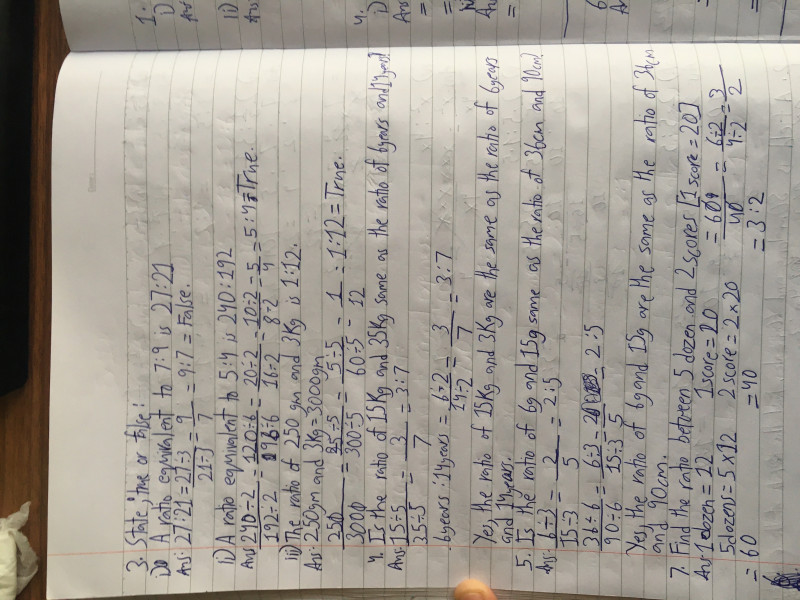 3. State, true or false:
i) A ratio equivalent to 7:9 is 27:21
Ans: 27:21 = 27÷3 = 9 = 9:7 = False.
21÷3 7
ii) A ratio equivalent to 5:4 is 240:192
Ans: 240÷2 = 120÷6 = 20÷2 = 10÷2 = 5 = 5:4 = True.
192÷2 96÷6 16÷2 8÷2 4
iii) The ratio of 250 gm and 3Kg is 1:12.
Ans: 250gm and 3Kg = 3000gm
250 = 25÷5 = 5÷5 = 1 : 1:12 = True.
3000 = 300÷5 60÷5 12
4. Is the ratio of 15Kg and 35Kg same as the ratio of 6years and 14years?
Ans: 15÷5 = 3 = 3:7
35÷5 7
6years : 14years = 6÷2 = 3 = 3:7
14÷2 7
Yes, the ratio of 15Kg and 3Kg are the same as the ratio of 6years
and 14years.
5. Is the ratio of 6g and 15g same as the ratio of 36cm and 90cm?
Ans: 6÷3 = 2 = 2:5
15÷3 5
36÷6 = 6÷3 = 2 = 2:5
90÷6 15÷3 5
Yes, the ratio of 6g and 15g are the same as the ratio of 36cm
and 90cm.
7. Find the ratio between 5 dozen and 2 scores [1 score = 20]
Ans: 1 dozen = 12 1 score = 20 = 60 = 6÷2 = 3
5 dozens = 5 × 12 2 score = 2 × 20 40 4÷2 2
= 60 = 40 = 3:2